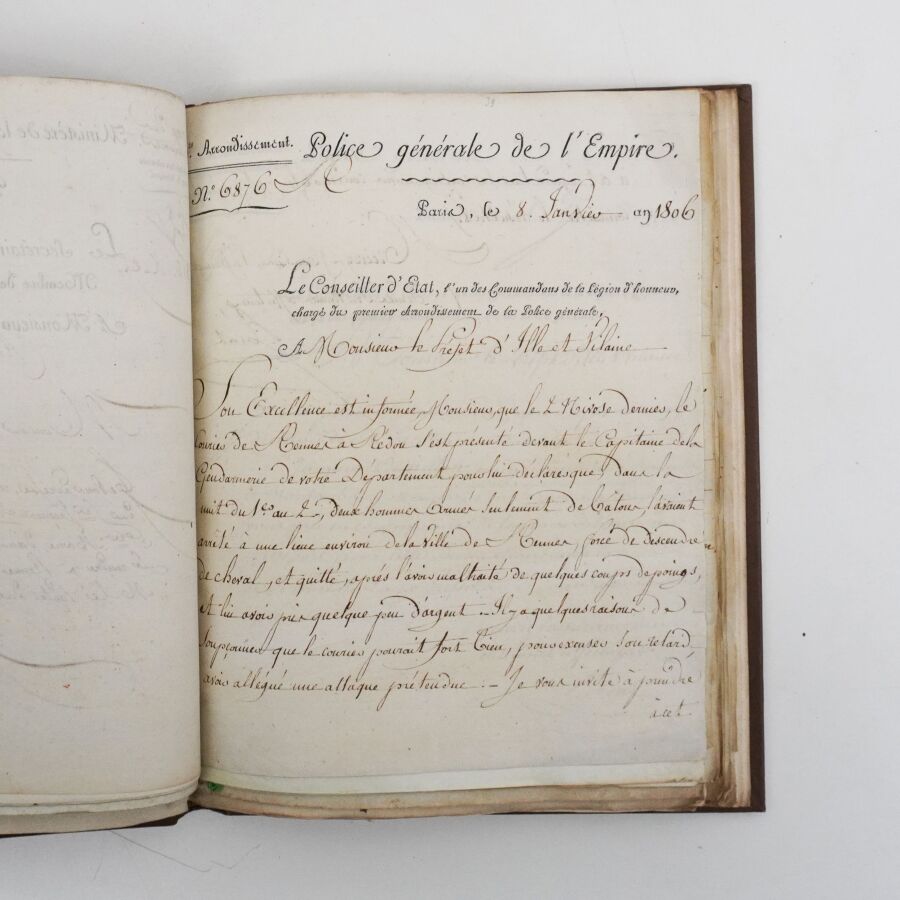 39
Arrondissement. Police générale de l'Empire.
N.° 6876
Paris, le 8. Janvier an 1806
Le Conseiller d'Etat, l'un des Commandans de la Légion d'honneur,
chargé du premier Arrondissement de la Police générale,
A Monsieur le Préfet d'Ille et Vilaine
Son Excellence est informée, Monsieur, que le 2 Nivose dernier, le
Courier de Rennes à Rédon s'est présenté devant le Capitaine de la
Gendarmerie de votre Département pour lui déclarer que, dans la
nuit du 1.er au 2, deux hommes armés seulement de batons, l'avaient
arrêté à une lieue environ de la ville de Rennes, forcé de descendre
de cheval, et quitté, après l'avoir maltraité de quelques coups de poings,
et lui avoir pris quelque peu d'argent - Il y a quelques raisons de
soupçonner que le courier pourait fort bien, pour excuser son retard,
avoir allégué une attaque prétendue. - Je vous invite à joindre
à cet
Ministère de la
Le Secrétaire
Membre de
A Monsieur